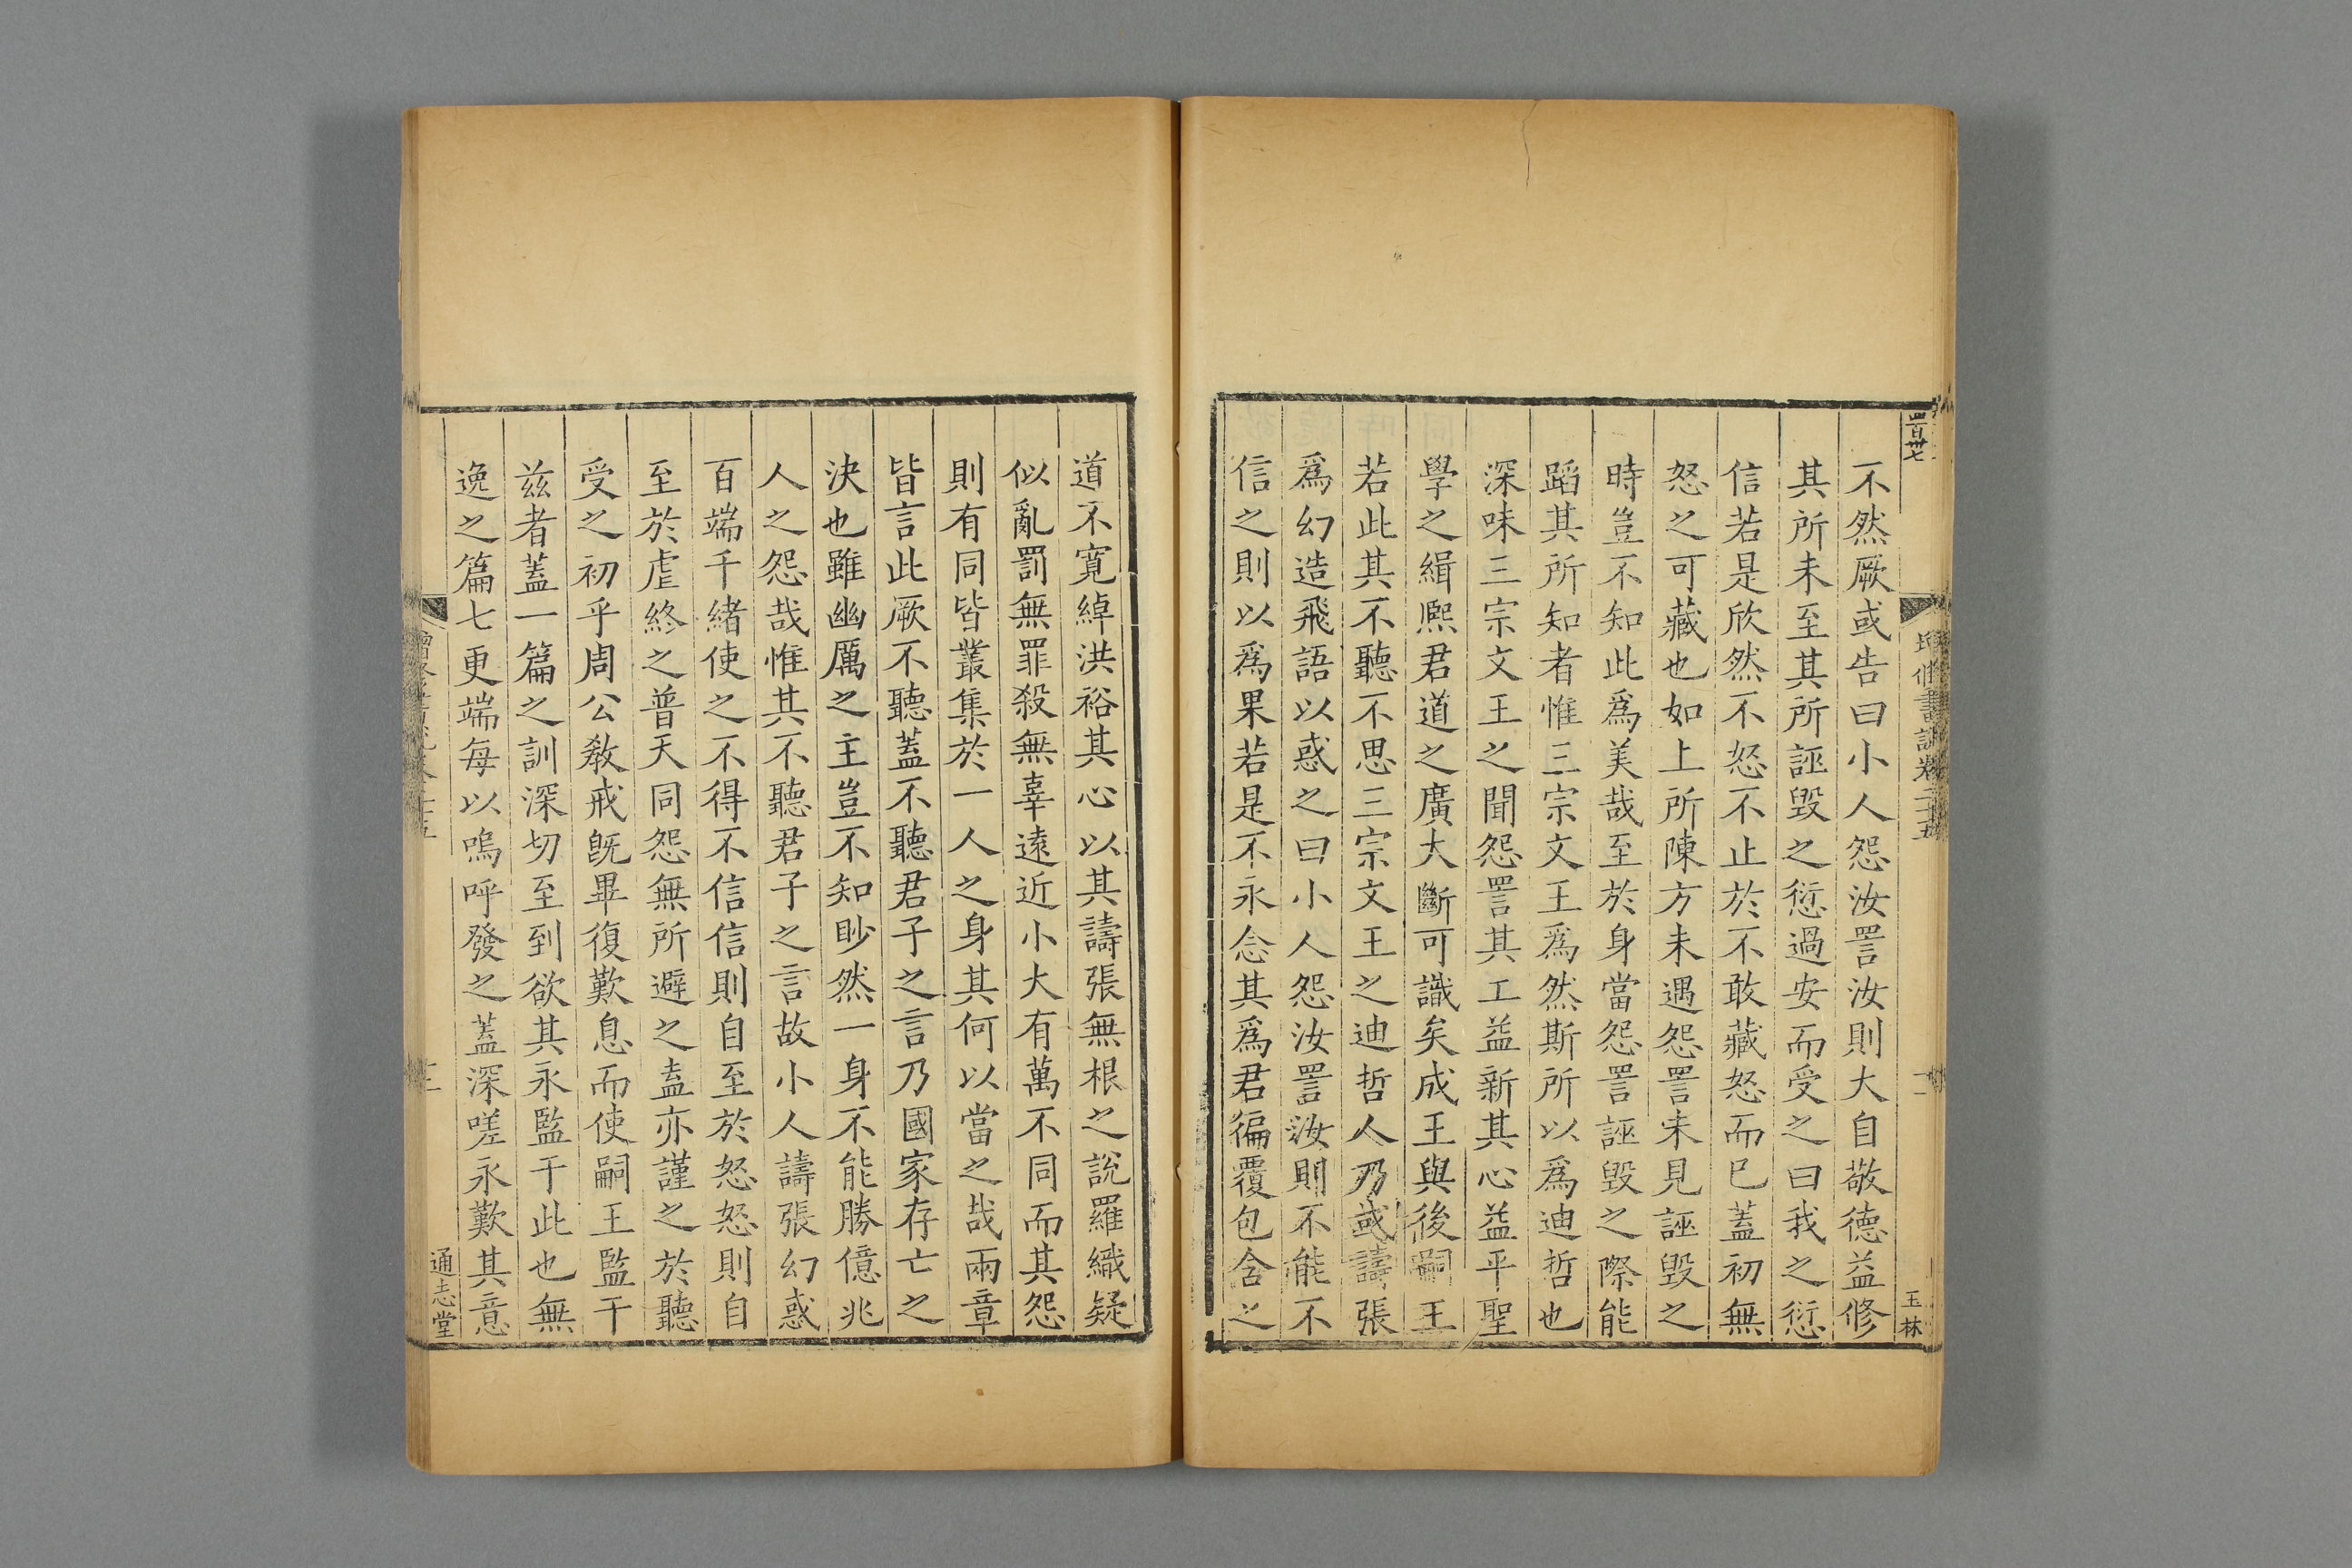 不然厥或告曰小人怨汝詈汝則大自敬德益修
其所未至其所誣毀之愆過安而受之曰我之愆
信若是欣然不怒不止於不敢藏怒而已蓋初無
怒之可藏也如上所陳方未遇怨詈未見誣毀之
時豈不知此爲美哉至於身當怨詈誣毀之際能
蹈其所知者惟三宗文王爲然斯所以爲迪哲也
深味三宗文王之聞怨詈其工益新其心益平聖
學之緝熈君道之廣大斷可識矣成王與後嗣王
若此其不聽不思三宗文王之迪哲人乃或譸張
爲幻造飛語以惑之曰小人怨汝詈汝則不能不
信之則以爲果若是不永念其爲君徧覆包含之
百卅七
玉林
道不寛綽洪裕其心以其譸張無根之說羅織疑
似亂罰無罪殺無辜遠近小大有萬不同而其怨
則有同皆叢集於一人之身其何以當之哉兩章
皆言此厥不聽蓋不聽君子之言乃國家存亡之
決也雖幽厲之主豈不知眇然一身不能勝億兆
人之怨哉惟其不聽君子之言故小人譸張幻惑
百端千緒使之不得不信信則自至於怒怒則自
至於虐終之普天同怨無所避之盍亦謹之於聽
受之初乎周公教戒旣畢復歎息而使嗣王監于
兹者蓋一篇之訓深切至到欲其永監于此也無
逸之篇七更端每以嗚呼發之蓋深嗟永歎其意
通志堂